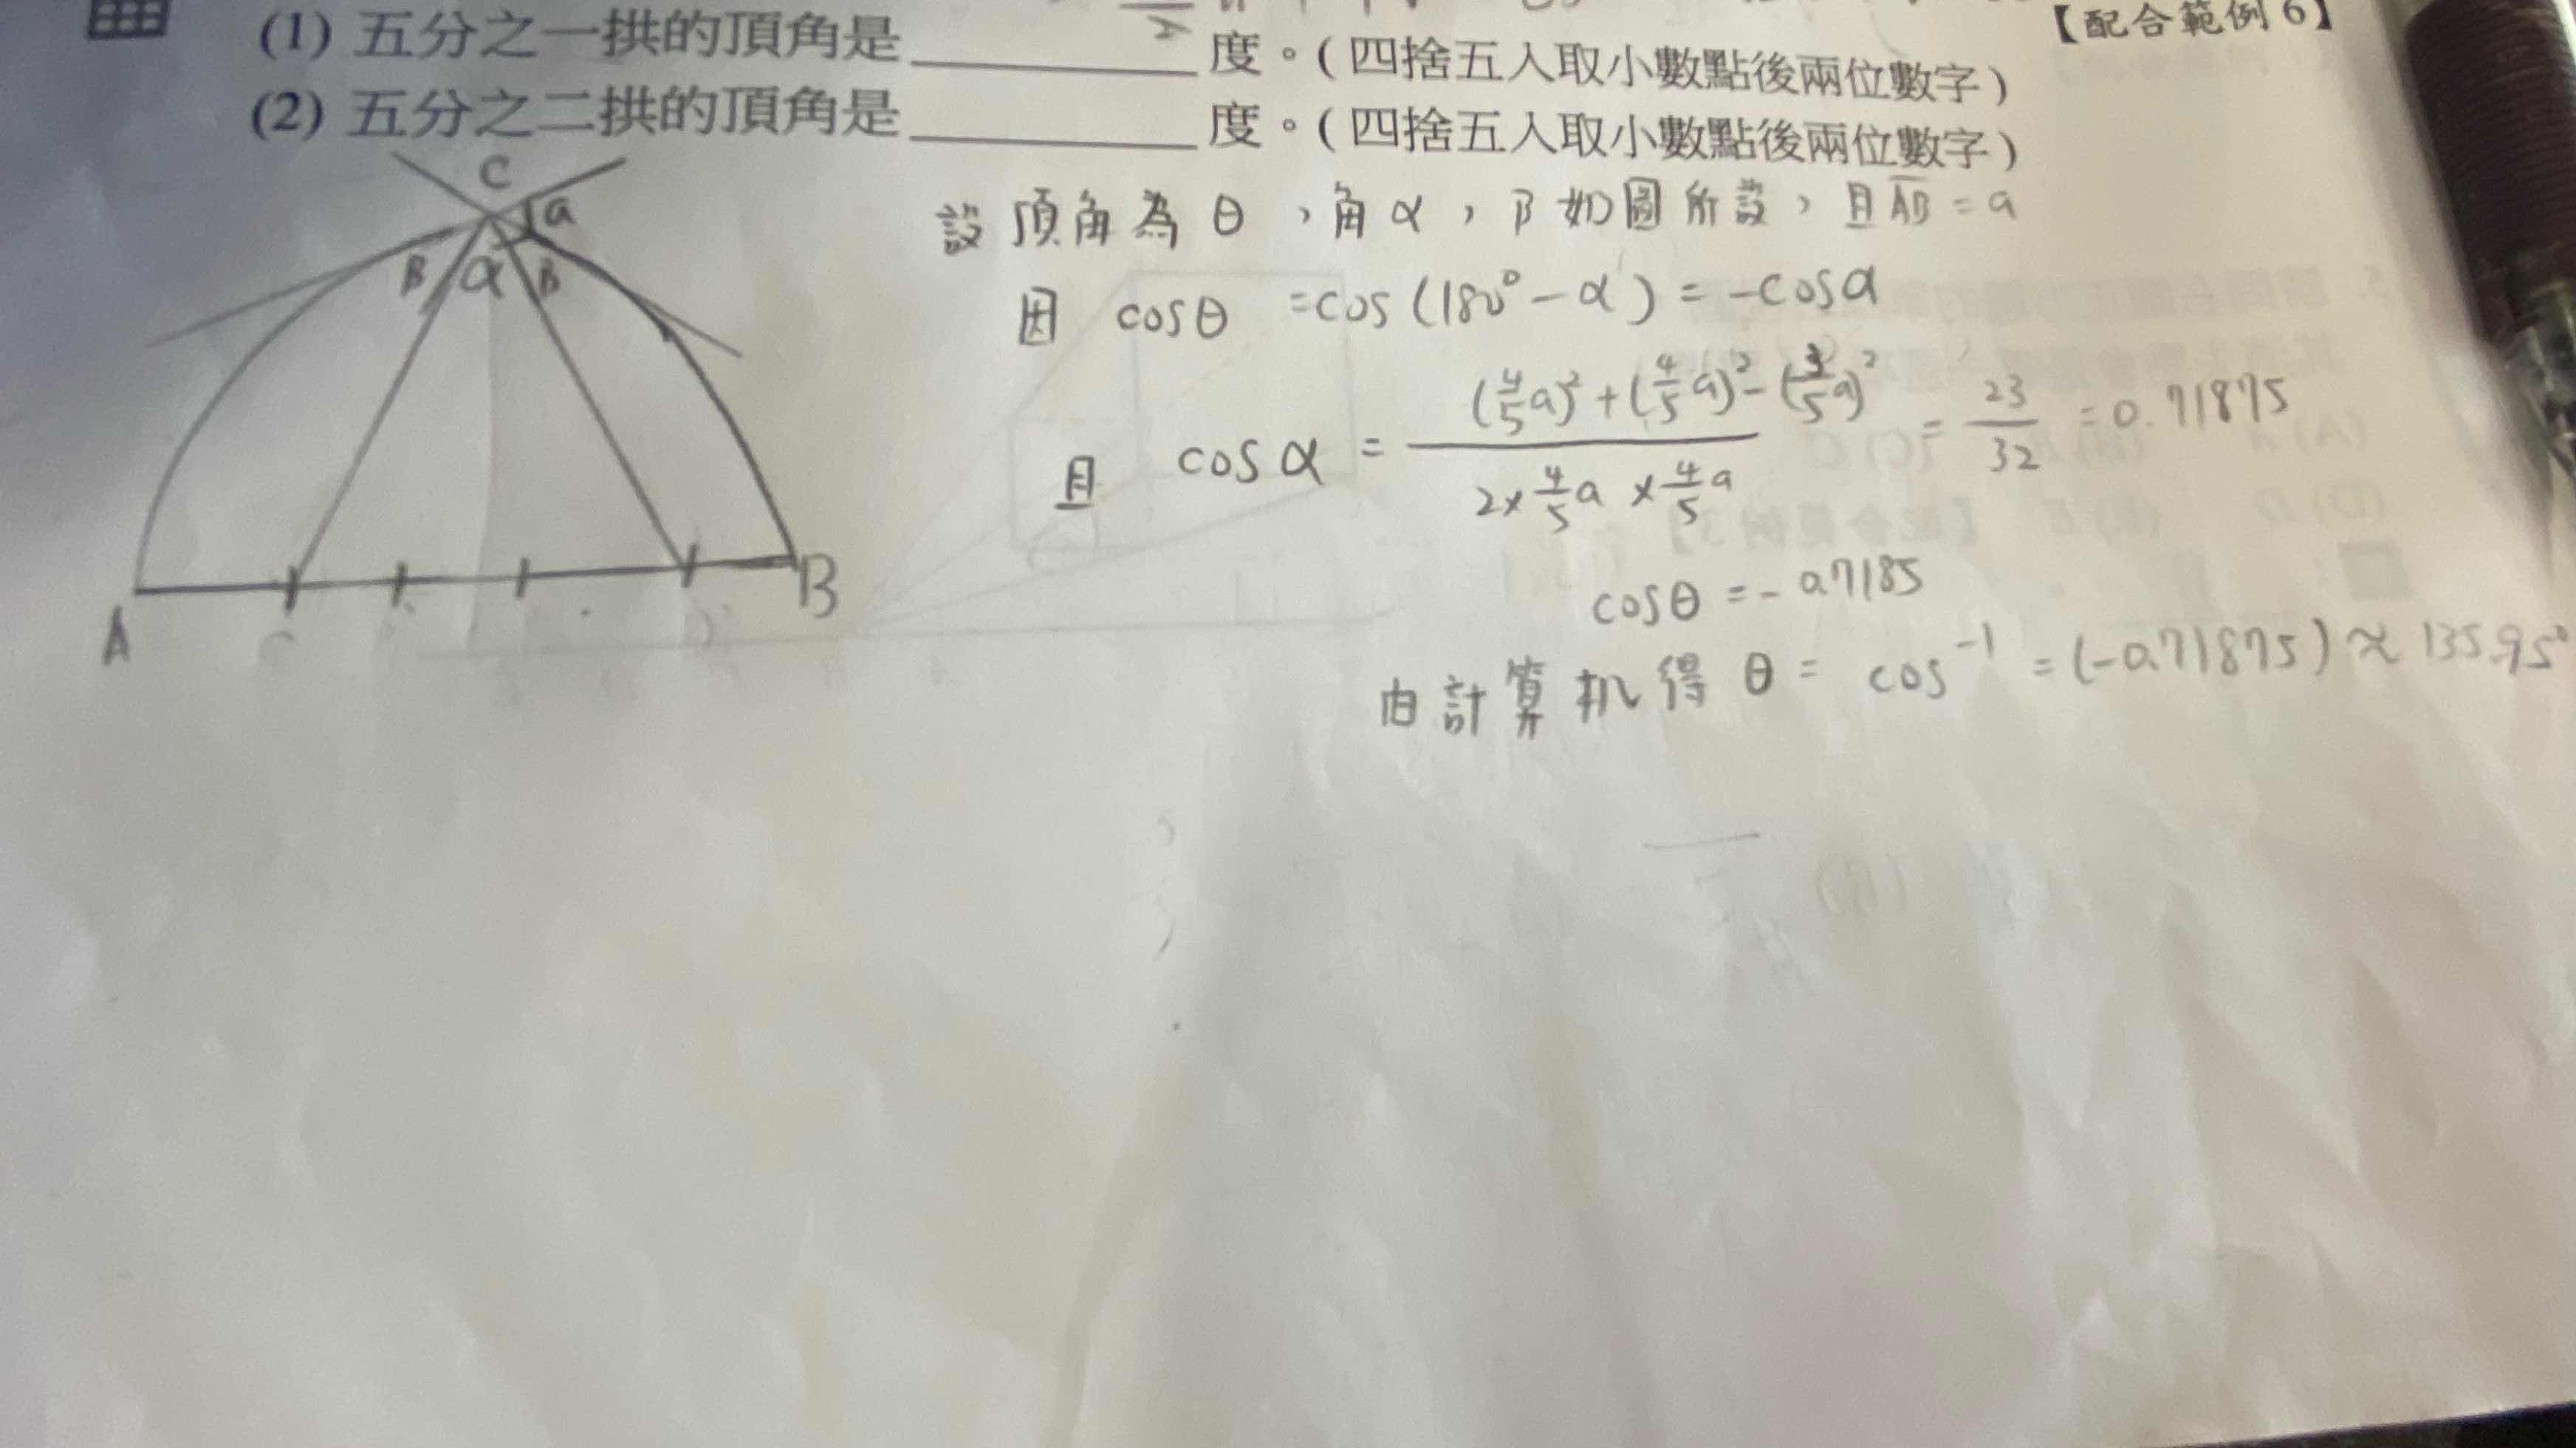 【配合範例 6】
(1) 五分之一拱的頂角是 度。( 四捨五入取小數點後兩位數字 )
(2) 五分之二拱的頂角是 度。( 四捨五入取小數點後兩位數字 )
設頂角為 θ , 角 α , β 如圖所設 , 且 AB = a
因 cosθ = cos (180° - α) = -cosα
且 cos α = (4/5 a)² + (4/5 a)² - (3/5 a)² / 2 × 4/5 a × 4/5 a = 23/32 = 0.71875
cosθ = - 0.7185
由計算机得 θ = cos⁻¹ = (-0.71875) ≈ 135.95°
C
a
β α β
A B